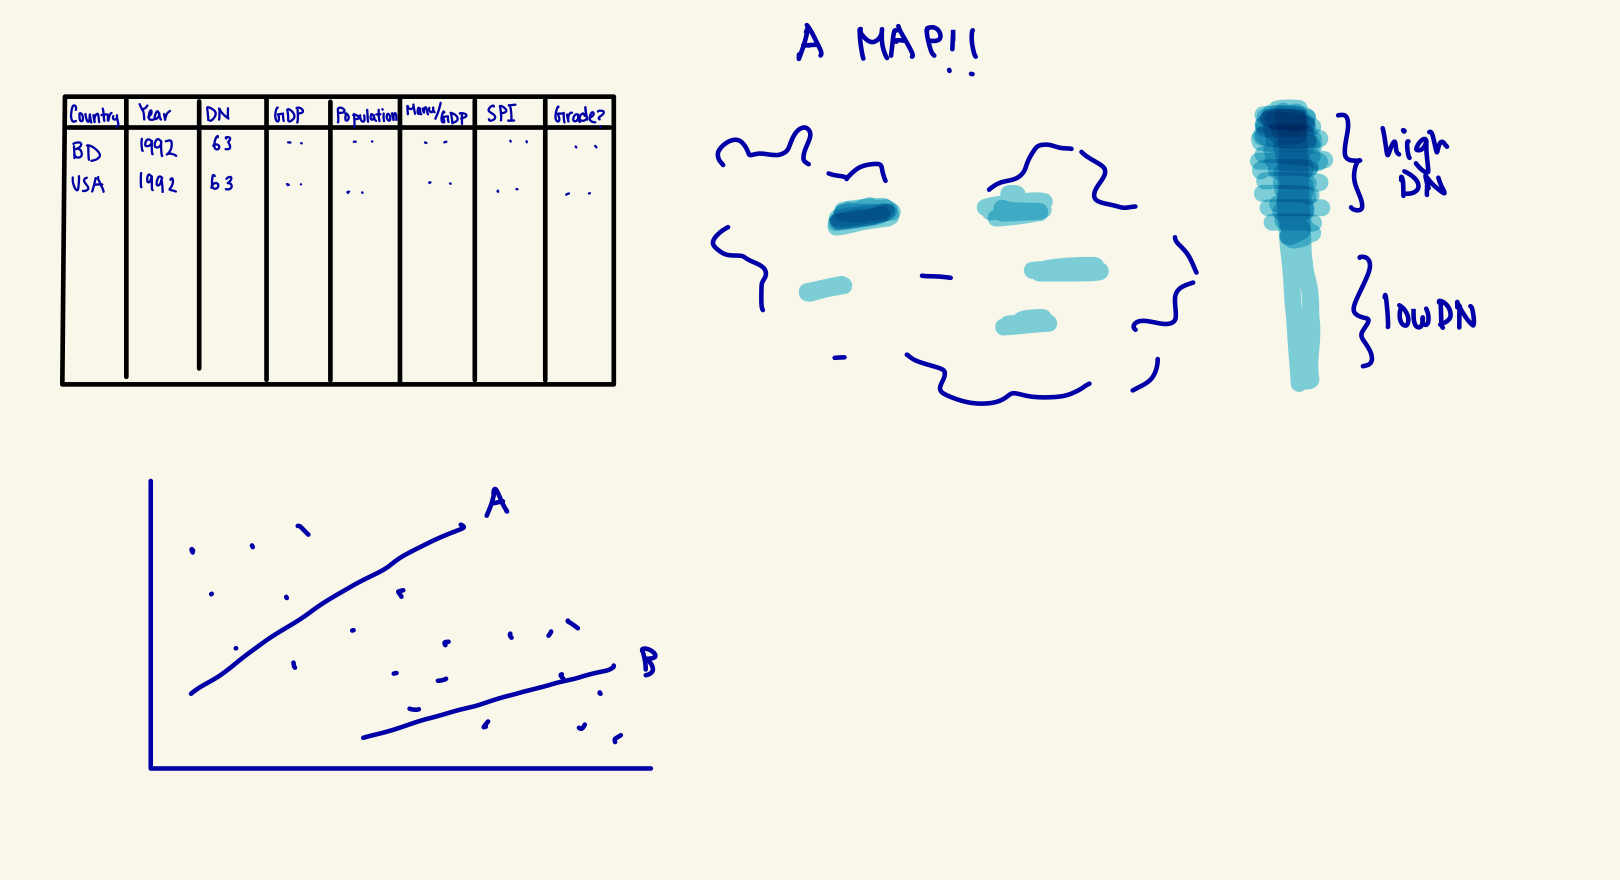 A MAP!!
Country Year DN GDP Population Manu/GDP SPI Grade?
BD 1992 63 .. .. .. .. ..
USA 1992 63 .. .. .. .. ..
high
DN
low DN
A
B